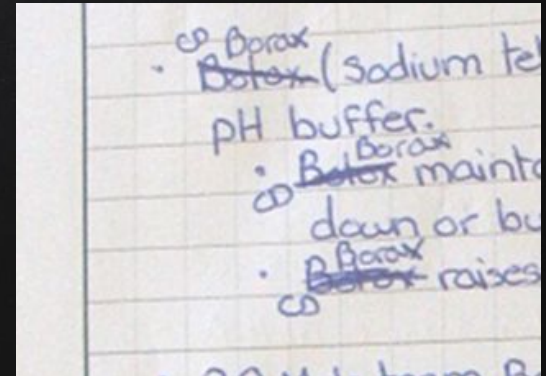 Borax
· Botox (Sodium te
pH buffer.
Borax
· Botox maint
down or bu
Borax
· Botox raises